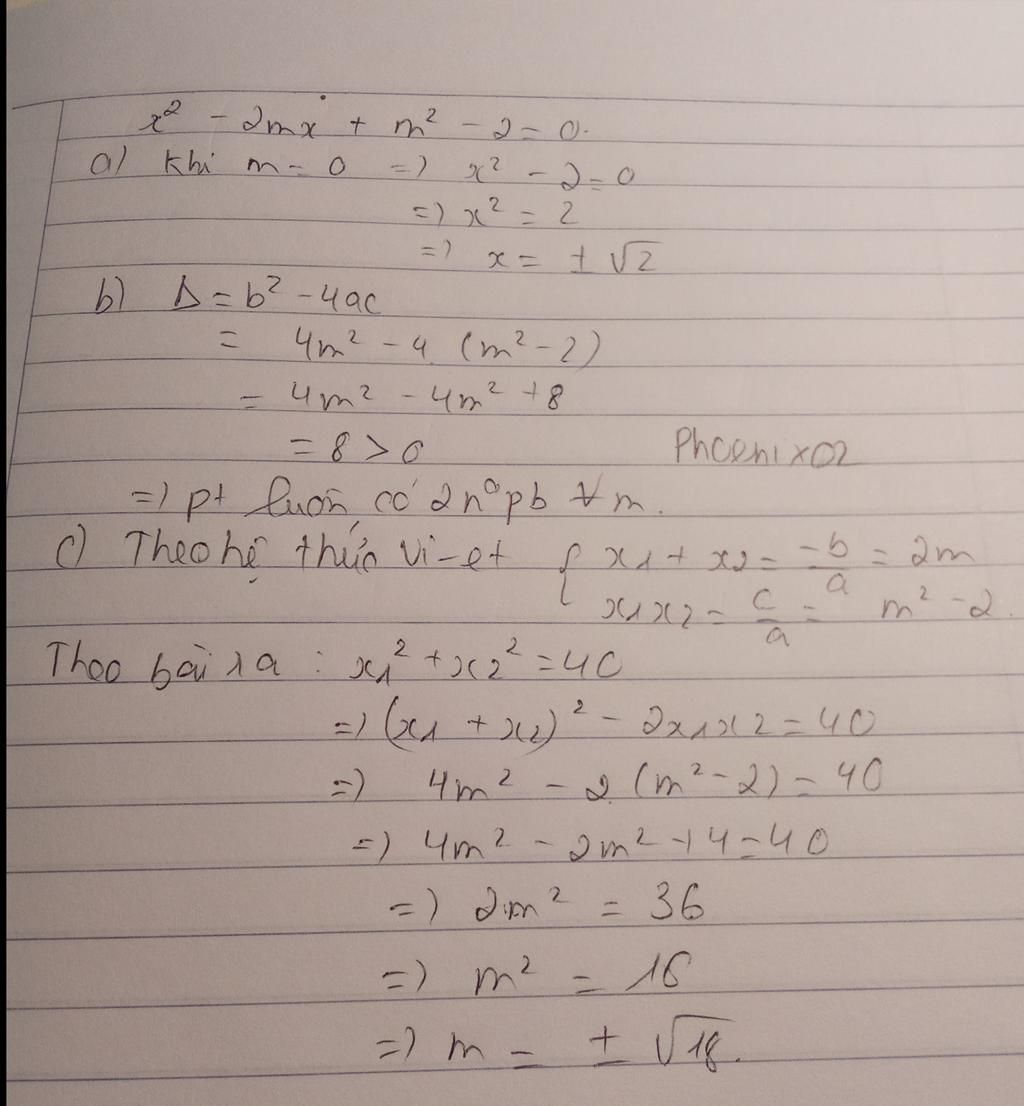 x² - 2mx + m² - 2 = 0.
a) Khi m = 0 => x² - 2 = 0
=> x² = 2
=> x = ± √2
b) Δ = b² - 4ac
= 4m² - 4 (m² - 2)
= 4m² - 4m² + 8
= 8 > 0
Phoenix02
=> pt luôn có 2 n⁰ pb ∀ m.
c) Theo hệ thức Vi-et { x1 + x2 = -b/a = 2m
x1x2 = c/a = m² - 2
Theo bài ra : x1² + x2² = 40
=> (x1 + x2)² - 2x1x2 = 40
=> 4m² - 2 (m² - 2) = 40
=> 4m² - 2m² + 4 = 40
=> 2m² = 36
=> m² = 18
=> m = ± √18.